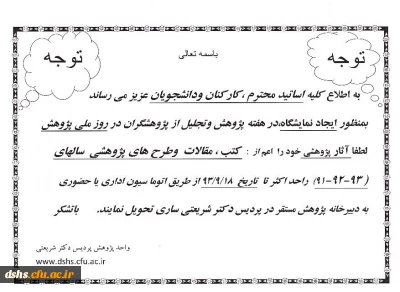 باسمه تعالی
توجه
توجه
به اطلاع کلیه اساتید محترم ، کارکنان ودانشجویان عزیز می رساند
بمنظور ایجاد نمایشگاه،در هفته پژوهش وتجلیل از پژوهشگران در روز ملی پژوهش
لطفا آثار پژوهتی خود را اعم از : کتب ، مقالات وطرح های پژوهشی سالهای
(۹۳-۹۲-۹۱) راحد اکثر تا تاریخ ۹۳/۹/۱۸ از طریق اتوما سیون اداری یا حضوری
به دبیرخانه پژوهش مستقر در پردیس دکتر شریعتی ساری تحویل نمایند. باتشکر
واحد پژوهش پردیس دکتر شریعتی
www.dshs.cfu.ac.ir
dshs.cfu.ac.ir